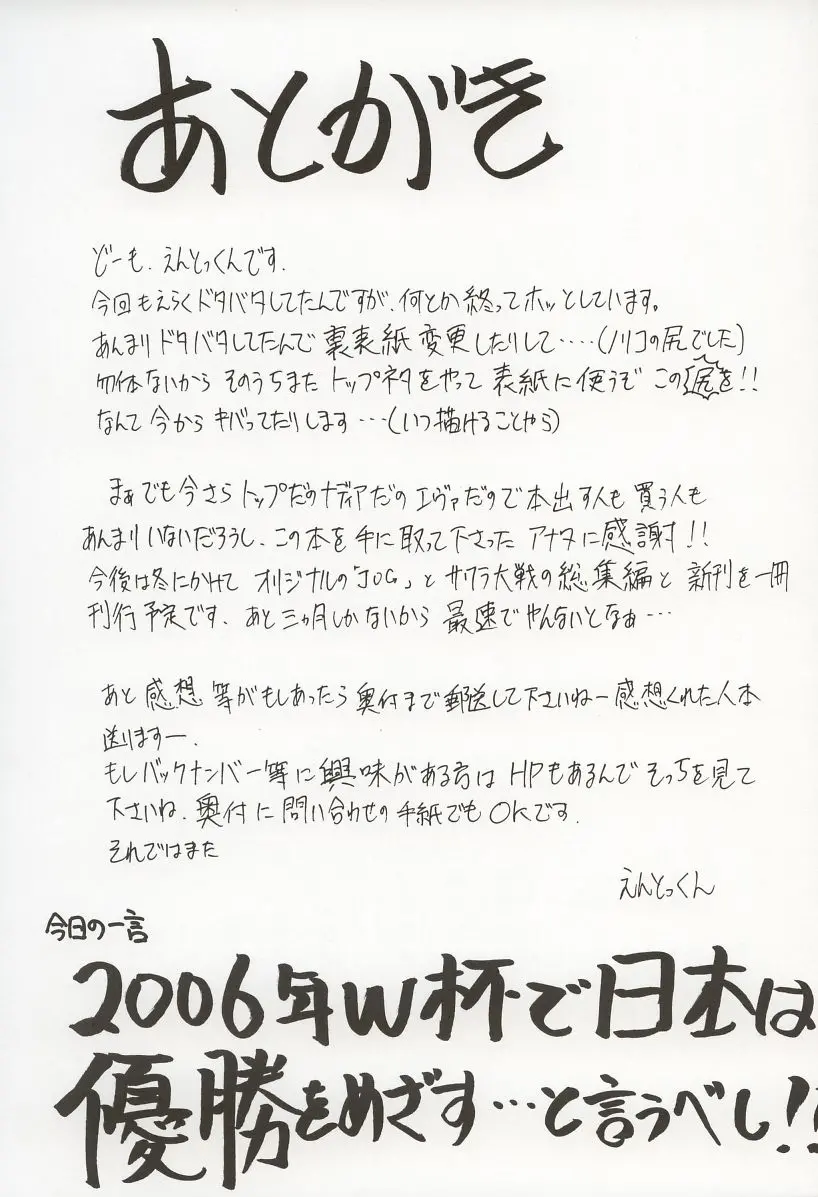 あとがき
どーも、えんとっくんです。
今回もえらくドタバタしてたんですが、何とか終ってホッとしています。
あんまりドタバタしてたんで裏表紙変更したりして……(ノリコの尻でした)
勿体ないからそのうちまたトップネタをやって表紙に使うぞこの尻を!!
なんて今からキバってたりします…(いつ描けることやら)
まぁでも今さらトップだのナディアだのエヴァだので本出す人も買う人も
あんまりいないだろうし、この本を手に取って下さったアナタに感謝!!
今後は冬にかけてオリジナルの「JOG」とサクラ大戦の総集編と新刊を一冊
刊行予定です、あと三ヵ月しかないから最速でやんないとなぁ…
あと感想等がもしあったら奥付まで郵送して下さいねー感想くれた人本
送りますー、
もしバックナンバー等に興味がある方はHPもあるんでそっちを見て
下さいね、奥付に問い合わせの手紙でもOKです。
それではまた
えんとっくん
今日の一言
2006年W杯で日本は
優勝をめざす…と言うべし!!